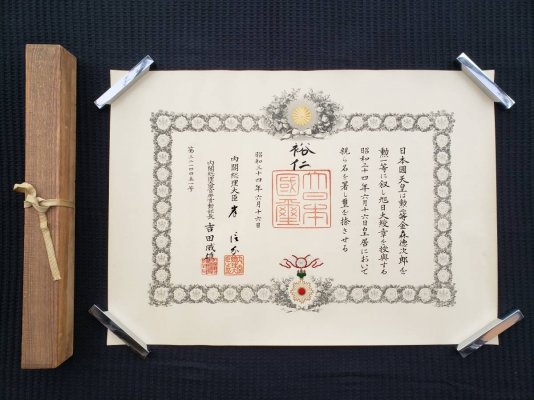 日本國天皇は勲二等金森徳次郎を
勲一等に叙し旭日大綬章を授與する
昭和三十四年六月十六日皇居において
親ら名を署し璽を捺させる
裕仁
大日本
國璽
昭和三十四年六月十六日
内閣総理大臣 岸 信介
内閣総理大臣官房賞勲部長 吉田威雄